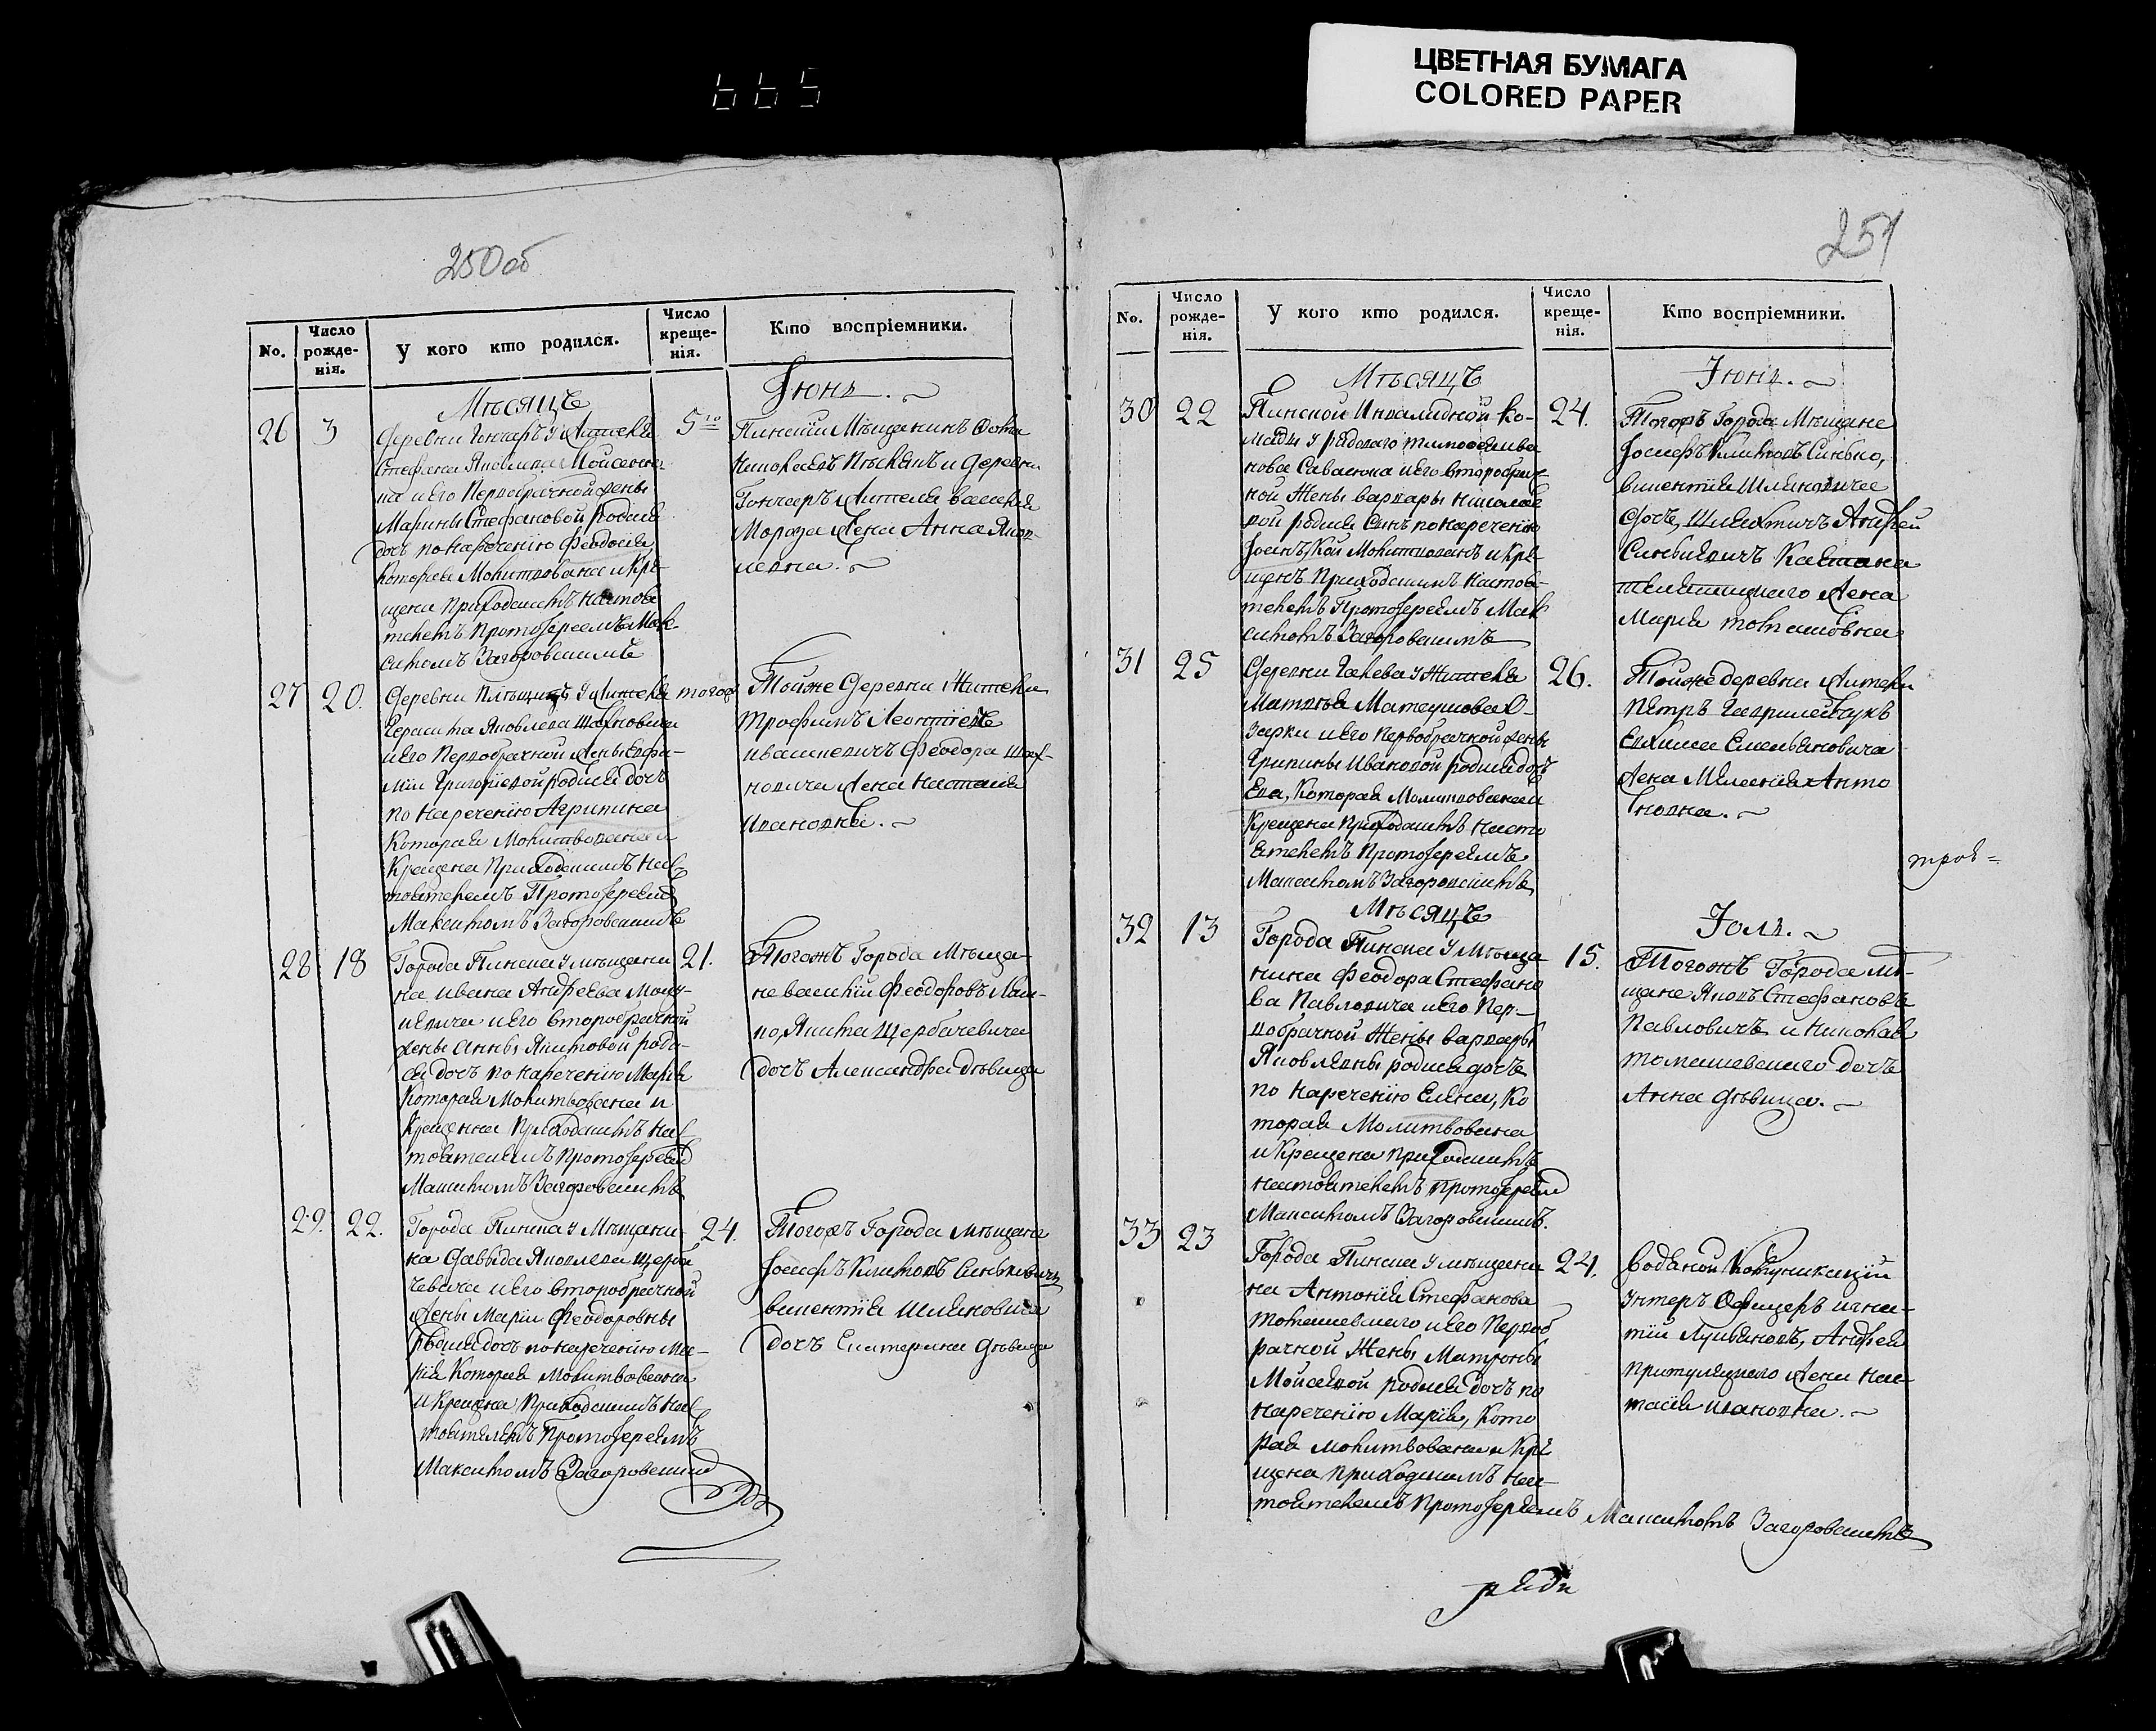 665
ЦВЕТНАЯ БУМАГА
COLORED PAPER
250 об
No.
Число рожде-нія.
У кого кто родился.
Число креще-нія.
Кто воспріемники.
Мѣсяцъ
Іюнь.
26
3
Деревни Гончаръ у Жителя
Стефана Яковлева Мойсеени
на и Его Первобрачной Жены
Марины Стефановой родися
дочь по нареченію Феодосія,
Которая Молитвована и Кре-
щена Приходскимъ Настоя
телемъ Протоіереемъ Мак-
симомъ Загоровскимъ
5го
Пинскій Мѣщанинъ Фома
и Деревни
Гончаръ Жителя Василія
Мороза Жена Анна Яков-
левна.
27
20.
Деревни у Жителя
Герасима Яковлева
и Его Первобрачной Жены Евфи-
міи Григоріевой родися дочь
по Нареченію Агрипина
Которая Молитвована и
Крещена Приходскимъ Нас
тоятелемъ Протоіереемъ
Максимомъ Загоровскимъ
тогож
Тойже Деревни Житель
Трофимъ Леонтіевъ
Ивашкевичъ Феодора Шах-
новича Жена Настасія
Ивановна.
28
18
Города Пинска у мѣщани
на Ивана Андреева
и Его второбрачной
Жены Анны Якимовой роди-
ся дочь по нареченію Марія
Которая Молитвована и
Крещена Приходскимъ Нас
тоятелемъ Протоіереемъ
Максимомъ Загоровскимъ
21.
Тогожъ Города Мѣща-
не Василій Феодоровъ
Якима Щербачевича
дочь Александра дѣвица
29.
22.
Города Пинска у Мѣщани-
на Давыда Яковлева Щерба
чевича и Его второбрачной
Жены Маріи Феодоровны
родися дочь по нареченію Ма-
рія Которая Молитвована
и Крещена Приходскимъ Нас
тоятелемъ Протоіереемъ
Максимомъ Загоровским
24.
Тогожъ Города мѣщане
Іосифъ Климовъ Синкевичъ
Викентія Шляковича
дочь Екатерина дѣвица
251
No.
Число рожде-нія.
У кого кто родился.
Число креще-нія.
Кто воспріемники.
Мѣсяцъ
Іюнь.
30
22
Пинской Инвалидной Ко-
манды у рядоваго Тимофея Ива
нова Савасюка и Его второбрач
ной Жены Варвары Николае
вой родися Сынъ по нареченію
Іоанъ, Кой Молитвованъ и Кре-
щенъ Приходскимъ Настоя-
телемъ Протоіереемъ Мак
симомъ Загоровскимъ
24.
Тогожъ Города Мѣщане
Іосифъ Климовъ
Викентія Шляковича
дочь, Шляхтичъ Андрей
Синкевичъ
Жена
Марія
31
25
Деревни у Жителя
Матвѣя Матеушова О-
зарки и Его Первобрачной Жены
Грипины Ивановой родися дочь
Ева, Которая Молитвована и
Крещена Приходскимъ Насто
ятелемъ Протоіереемъ
Максимомъ Загоровскимъ
26.
Тойже деревни Житель
Петръ
Емельяновича
Жена Меланія Анто
новна.
Мѣсяцъ
Іюль.
32
13
Города Пинска у Мѣща-
нина Феодора Стефано
ва Павловича и Его Пер-
вобрачной Жены Варвары
Яковлевны родися дочь
по нареченію Елена, Ко
торая Молитвована
и Крещена Приходскимъ
Настоятелемъ Протоіереем
Максимомъ Загоровскимъ.
15.
Тогожъ Города мѣ-
щане Яковъ Стефановъ
Павловичъ и Николая
Томашевскаго дочь
Анна дѣвица.
33
23
Города Пинска у мѣщани
на Антонія Стефанова
Томашевскаго и Его Первоб
рачной Жены Матроны
Мойсеевой родися дочь по
нареченію Марія, Кото
рая Молитвована и Кре
щена Приходскимъ Нас-
тоятелемъ Протоіереемъ Максимомъ Загоровскимъ
24.
Водяной Комуникаціи
Унтеръ Офицеръ Игна-
тій Лукьяновъ, Андрея
Притулецкаго Жена Нас-
тасія Ивановна.